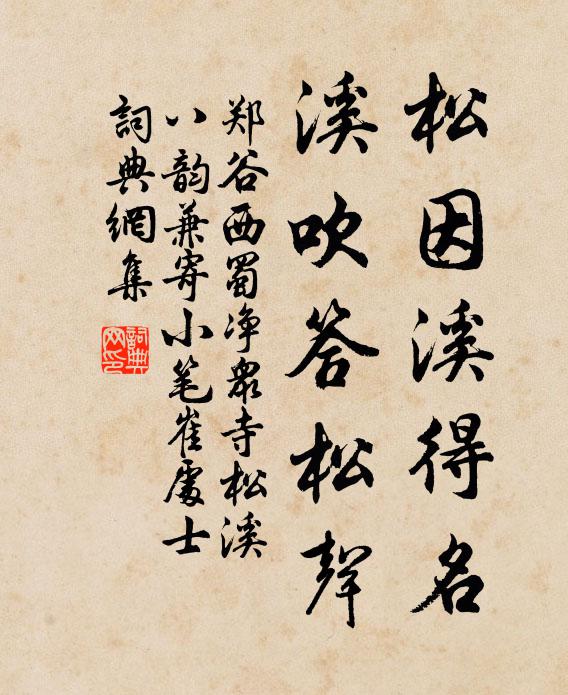 松因溪得名
溪吹答松聲
郑谷西蜀净眾寺松溪
八韵兼寄小笔崔處士
詞典網集
詞典網印